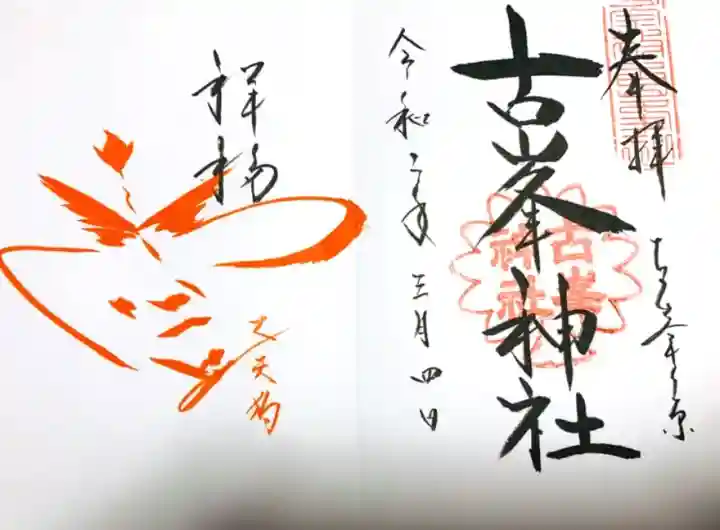 奉拝
古峯ヶ原
古峯神社
古峯神社
令和二年三月四日
祥
天狗